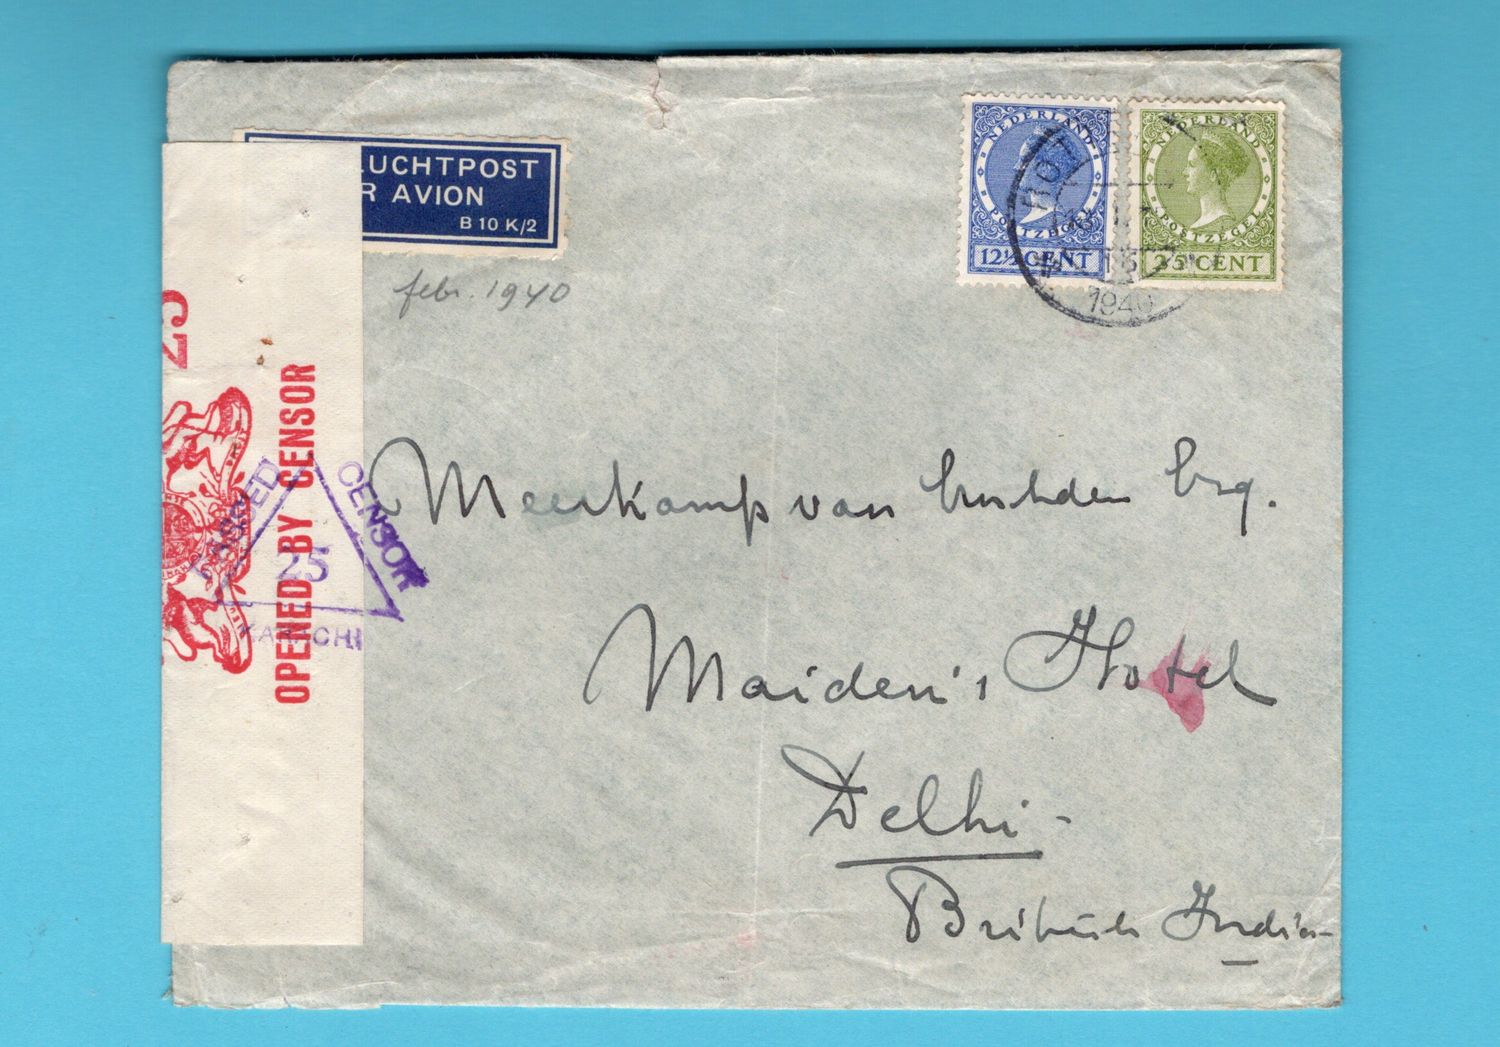 LUCHTPOST
R AVION
B 10 K/2
febr. 1940
NEDERLAND
POSTZEGEL
12½ CENT
NEDERLAND
POSTZEGEL
25 CENT
ROT
1940
25
OPENED BY CENSOR
PASSED
CENSOR
25
KARACHI
Meerkamp van Esq.
Maiden's Hotel
Delhi -
British India